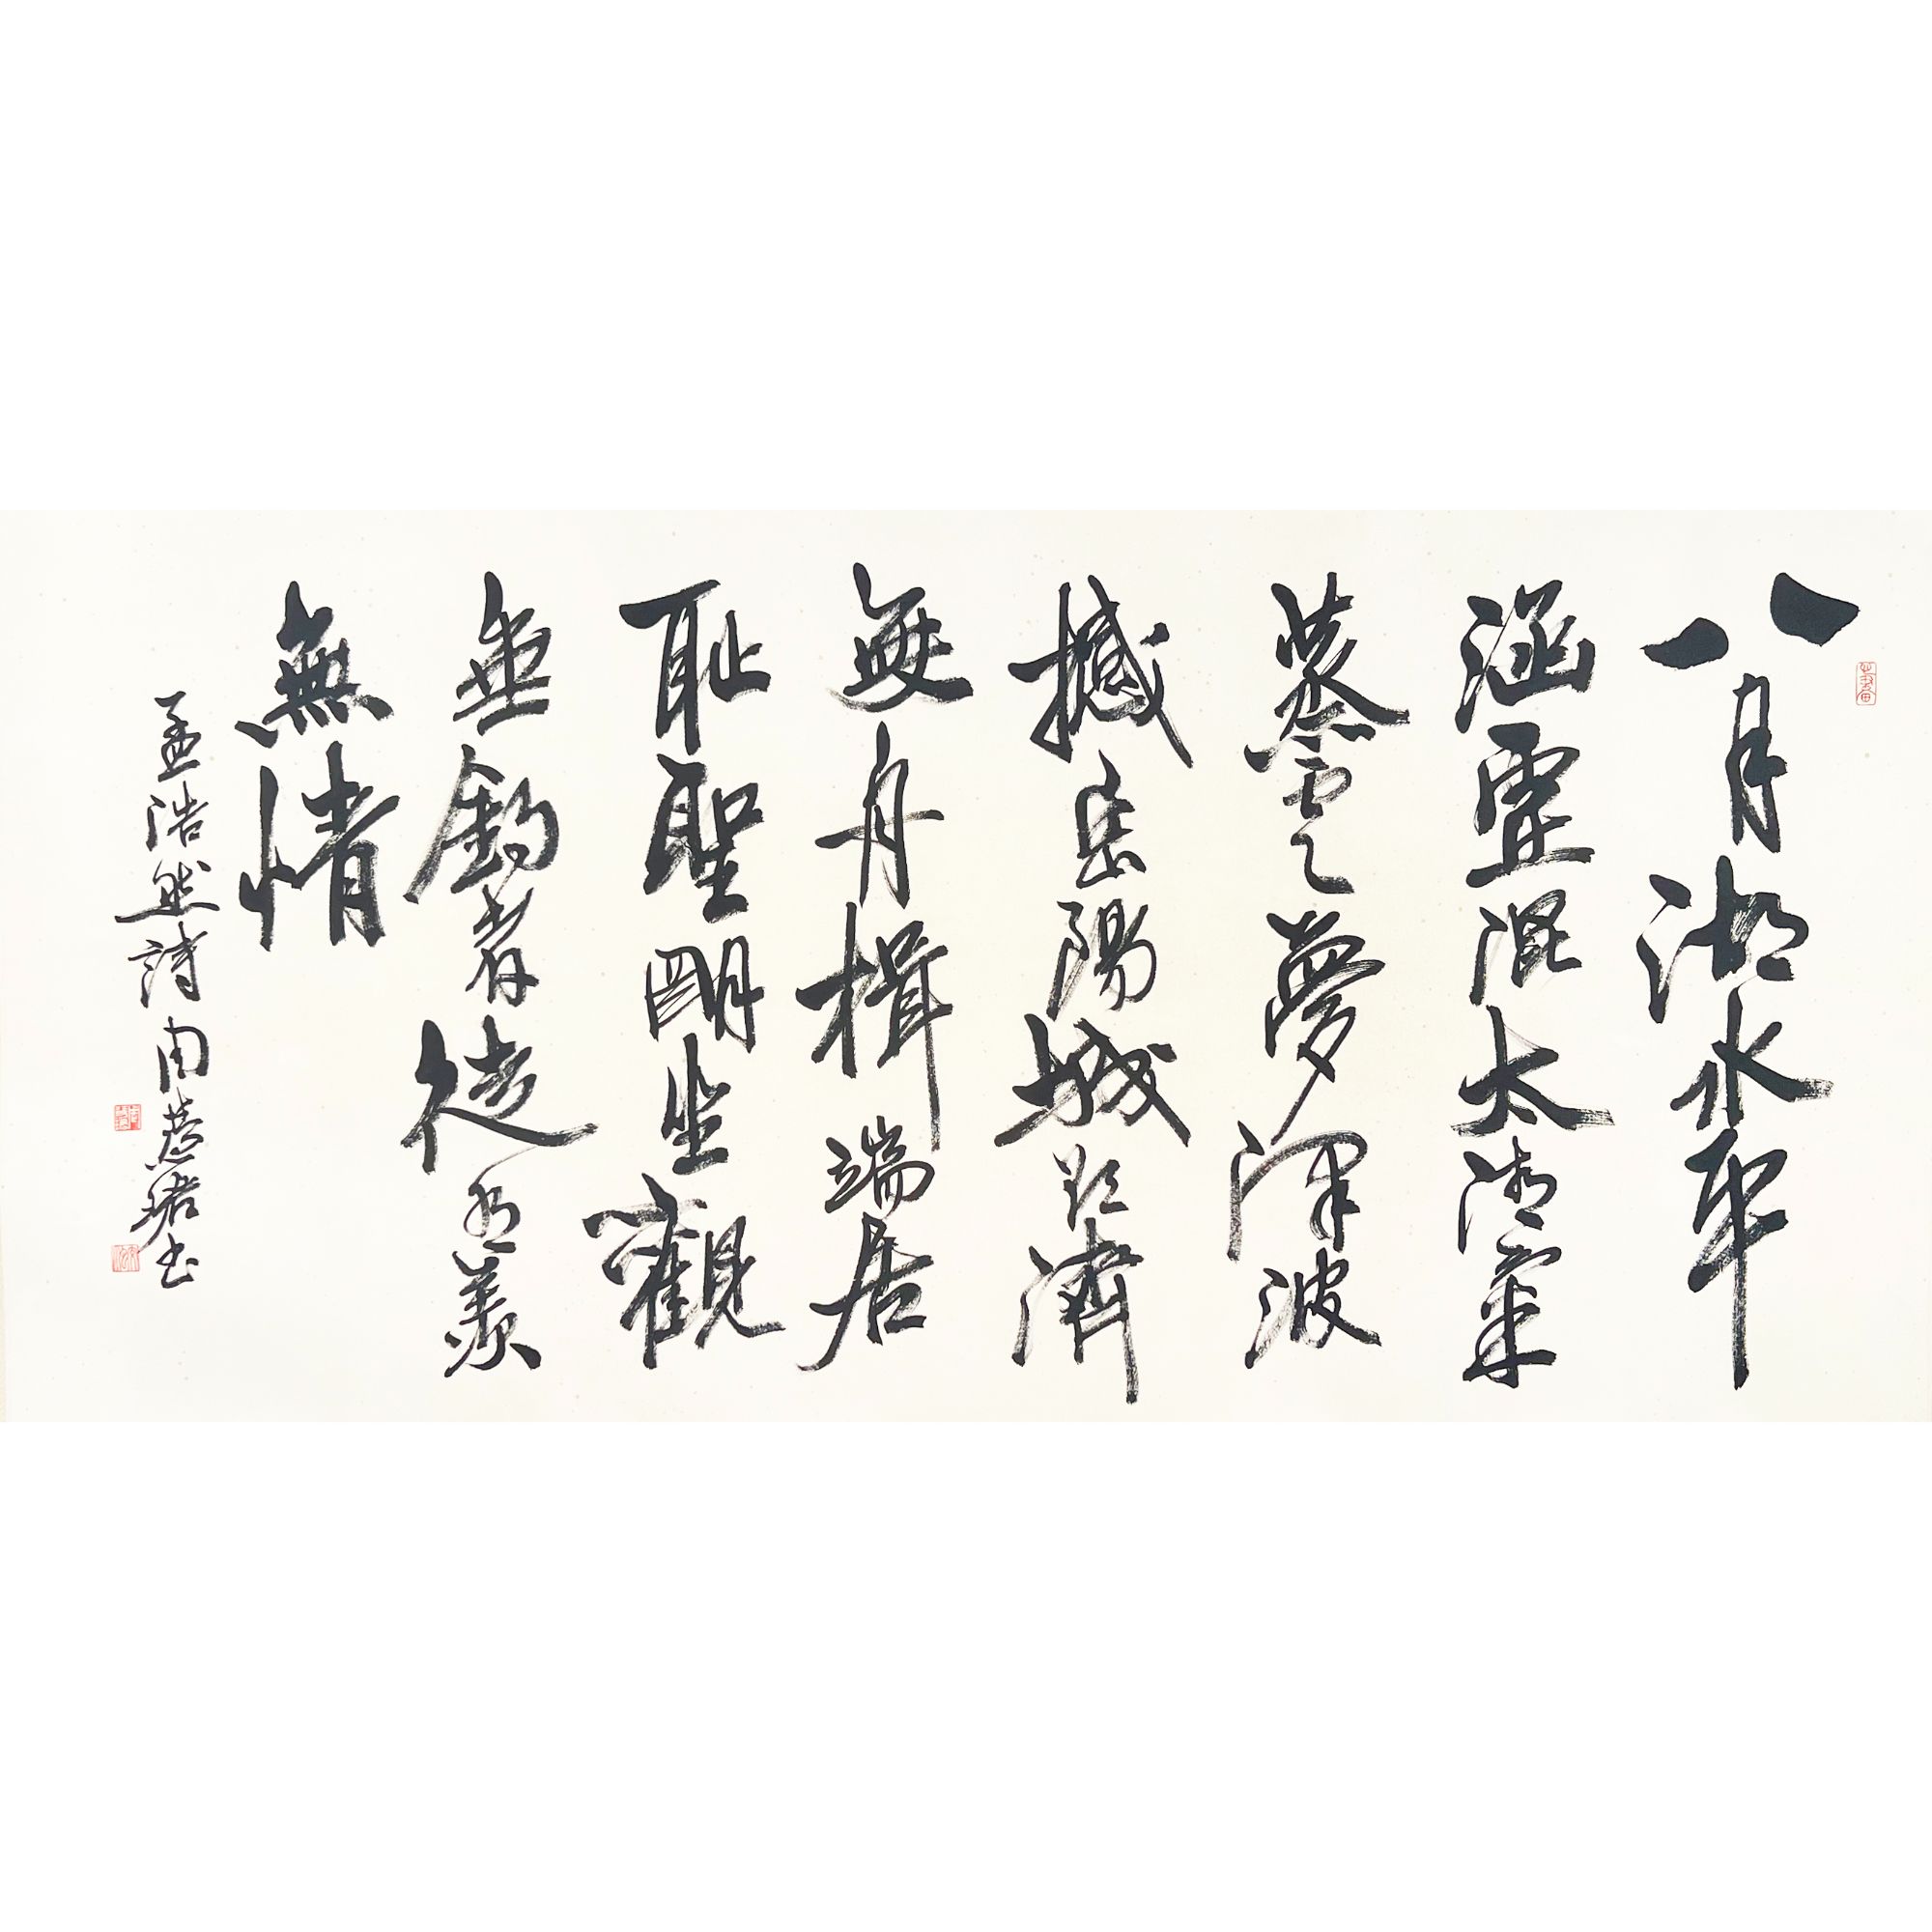 八月湖水平
涵虛混太清氣
蒸雲夢澤波
撼岳陽城欲濟
無舟楫端居
耻聖明坐觀
垂釣者徒有羨
魚情
孟浩然詩周慧珺書